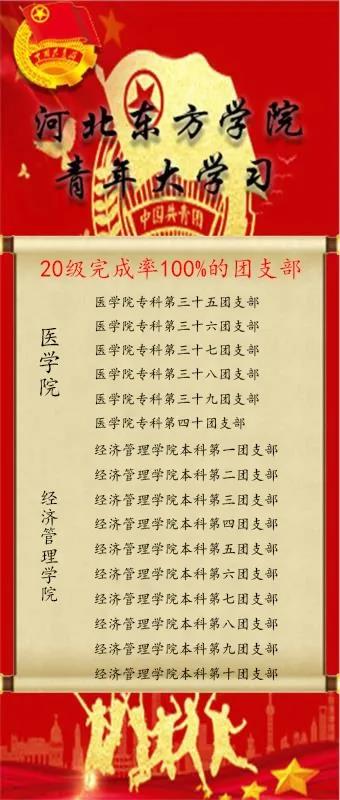 中国共青团
河北东方学院
青年大学习
中国共青团
20级完成率100%的团支部
医学院
医学院专科第三十五团支部
医学院专科第三十六团支部
医学院专科第三十七团支部
医学院专科第三十八团支部
医学院专科第三十九团支部
医学院专科第四十团支部
经济管理学院
经济管理学院本科第一团支部
经济管理学院本科第二团支部
经济管理学院本科第三团支部
经济管理学院本科第四团支部
经济管理学院本科第五团支部
经济管理学院本科第六团支部
经济管理学院本科第七团支部
经济管理学院本科第八团支部
经济管理学院本科第九团支部
经济管理学院本科第十团支部